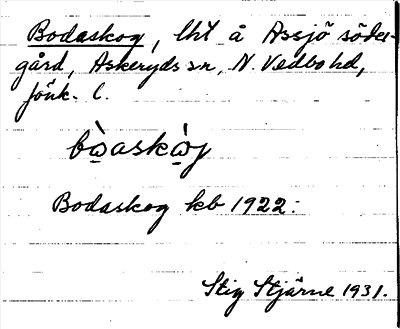 Bodaskog, lht å Assjö söder-
gård, Askeryds sn, N. Vedbo hd,
Jönk. l.
Bodaskog kb 1922:
Stig Stjärne 1931.